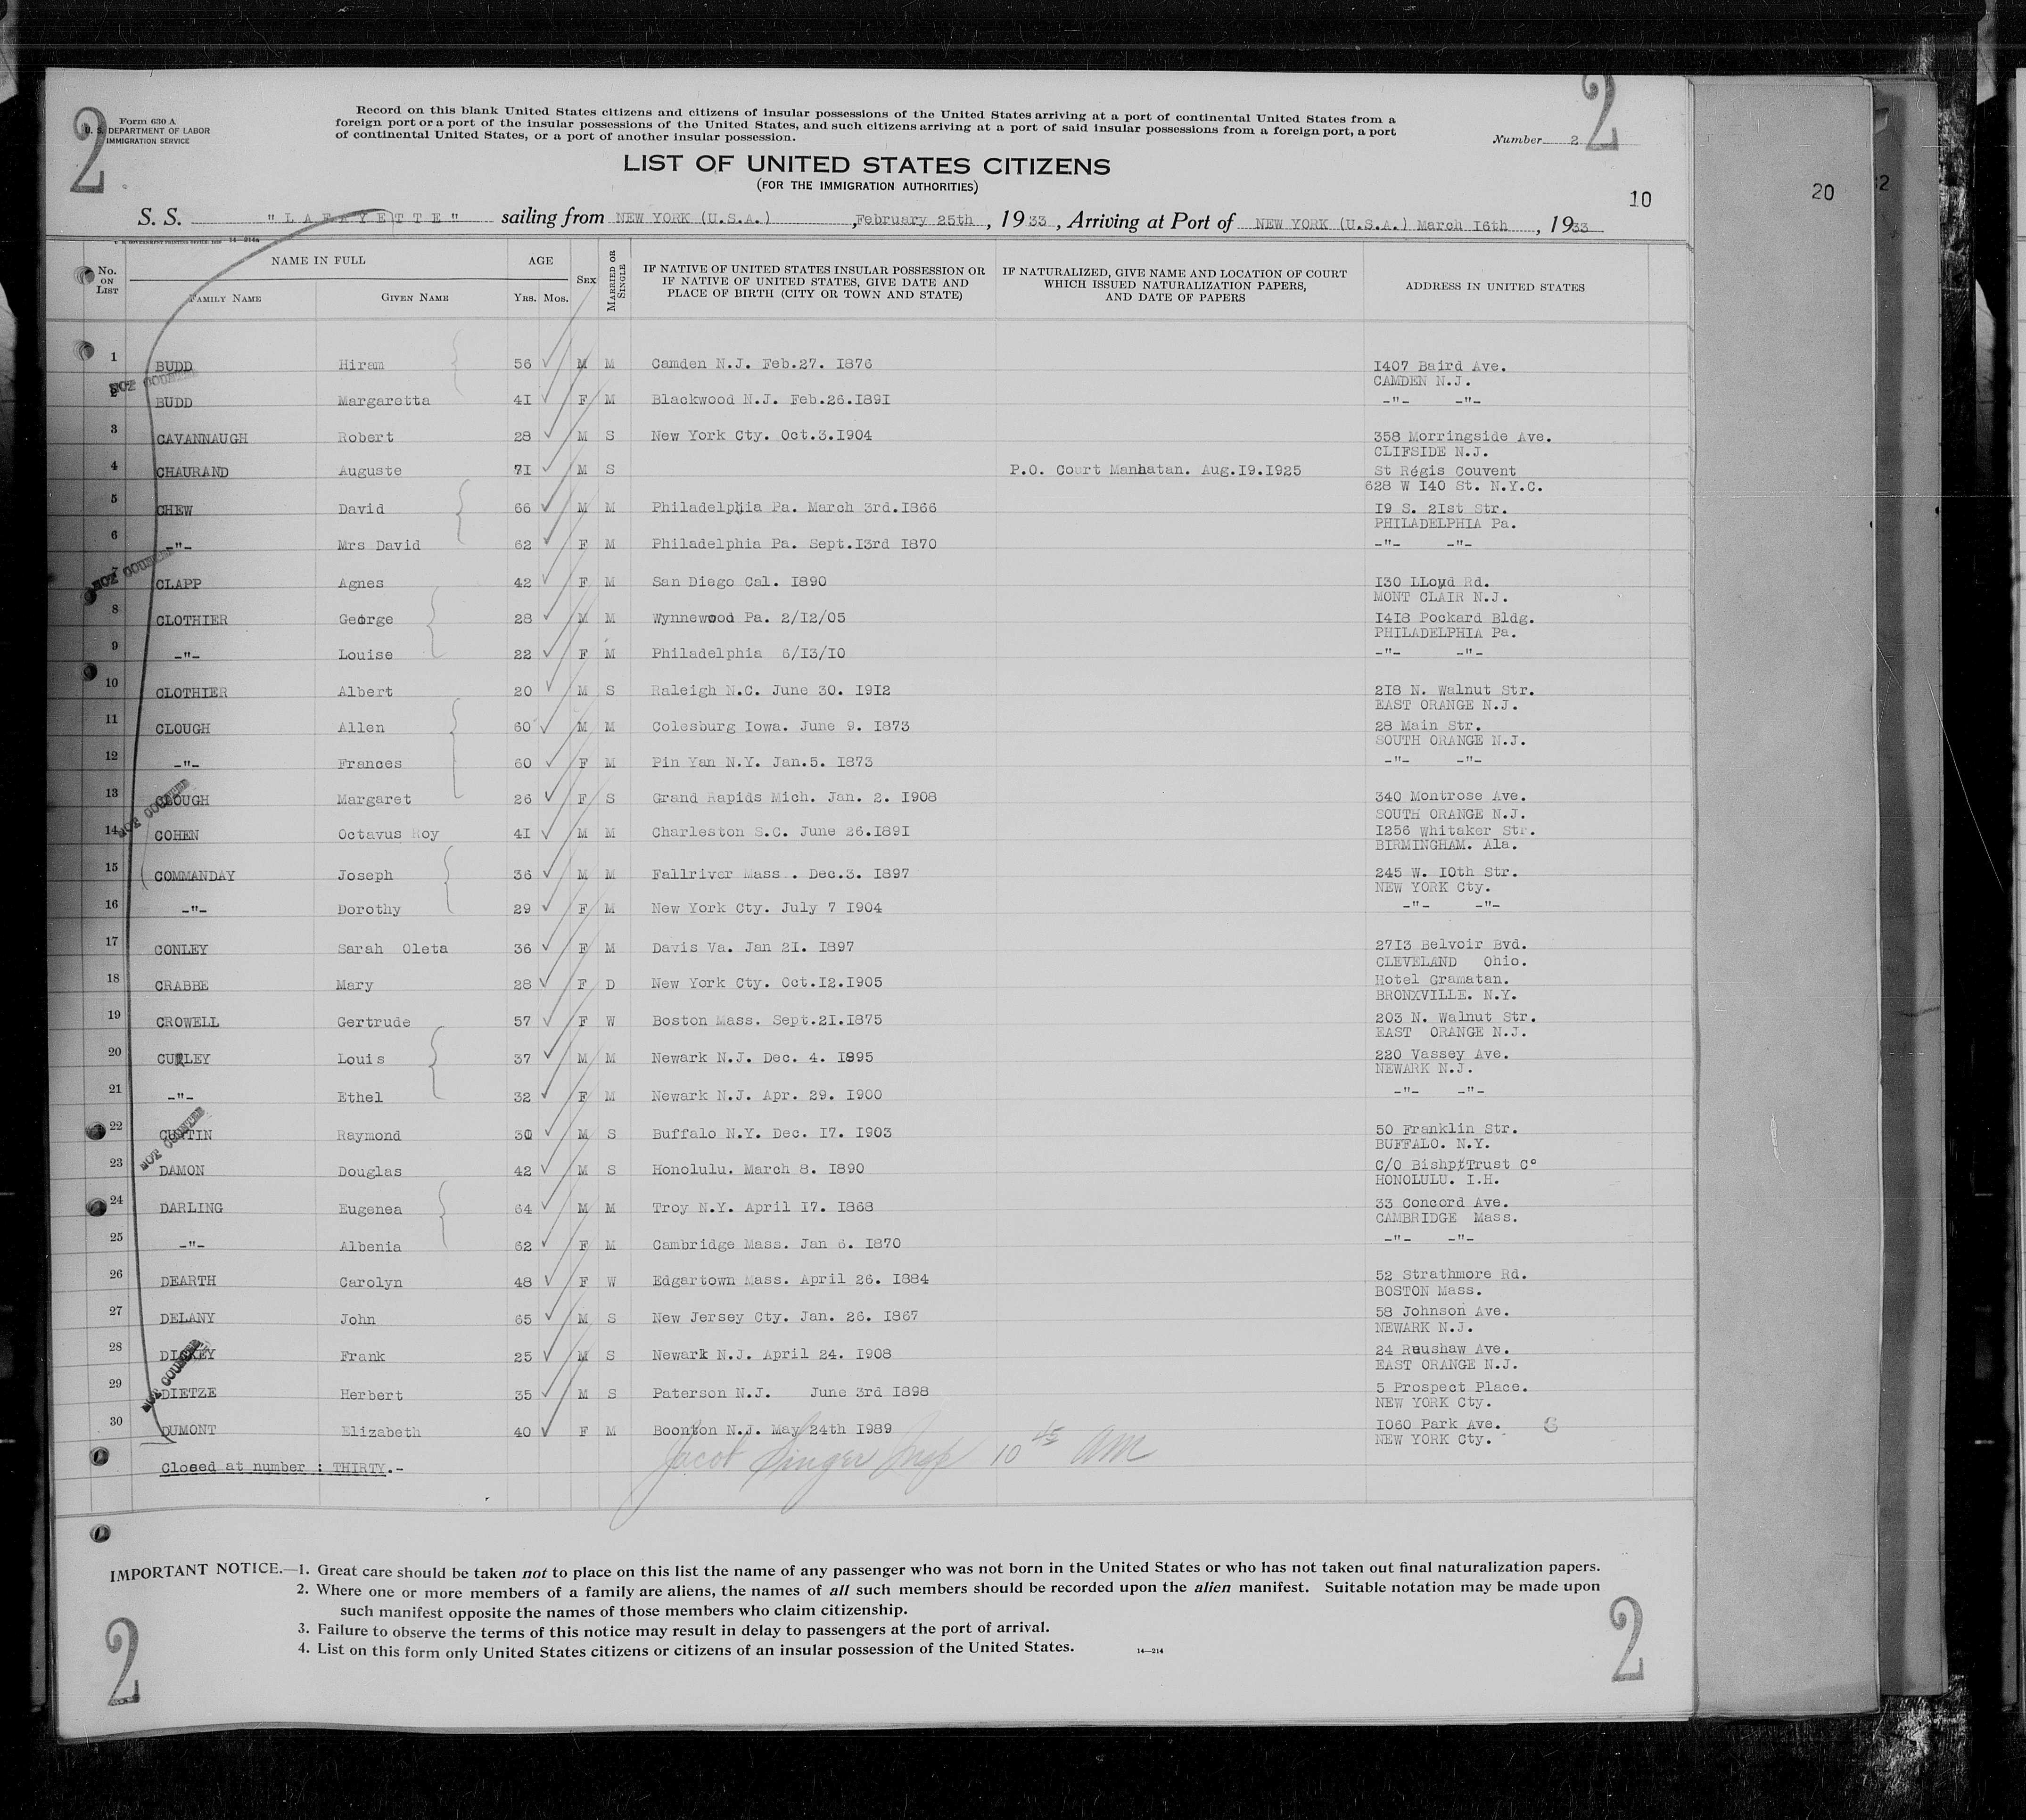 2
2
Form 630 A
U. S. DEPARTMENT OF LABOR
IMMIGRATION SERVICE
Record on this blank United States citizens and citizens of insular possessions of the United States arriving at a port of continental United States from a
foreign port or a port of the insular possessions of the United States, and such citizens arriving at a port of said insular possessions from a foreign port, a port
of continental United States, or a port of another insular possession.
Number 2
LIST OF UNITED STATES CITIZENS
(FOR THE IMMIGRATION AUTHORITIES)
10
20
32
S. S. "LAFAYETTE" sailing from NEW YORK (U.S.A.), February 25th, 1933, Arriving at Port of NEW YORK (U.S.A.) March 16th, 1933
U. S. GOVERNMENT PRINTING OFFICE 14—214a
No. on List
NAME IN FULL
Family Name
Given Name
AGE
Yrs. Mos.
Sex
Married or Single
IF NATIVE OF UNITED STATES INSULAR POSSESSION OR
IF NATIVE OF UNITED STATES, GIVE DATE AND
PLACE OF BIRTH (CITY OR TOWN AND STATE)
IF NATURALIZED, GIVE NAME AND LOCATION OF COURT
WHICH ISSUED NATURALIZATION PAPERS,
AND DATE OF PAPERS
ADDRESS IN UNITED STATES
1 BUDD Hiram 56 M M Camden N.J. Feb.27. I876 I407 Baird Ave.
CAMDEN N.J.
NOT COUNTED
2 BUDD Margaretta 4I F M Blackwood N.J. Feb.26.I89I -"- -"-
3 CAVANNAUGH Robert 28 M S New York Cty. Oct.3.I904 358 Morringside Ave.
CLIFSIDE N.J.
4 CHAURAND Auguste 7I M S P.O. Court Manhatan. Aug.I9.I925 St Régis Couvent
628 W I40 St. N.Y.C.
5 CHEW David 66 M M Philadelphia Pa. March 3rd.I866 I9 S. 2Ist Str.
PHILADELPHIA Pa.
6 -"- Mrs David 62 F M Philadelphia Pa. Sept.I3rd I870 -"- -"-
NOT COUNTED
7 CLAPP Agnes 42 F M San Diego Cal. I890 I30 LLoyd Rd.
MONT CLAIR N.J.
8 CLOTHIER George 28 M M Wynnewood Pa. 2/I2/05 I4I8 Pockard Bldg.
PHILADELPHIA Pa.
9 -"- Louise 22 F M Philadelphia 6/I3/I0 -"- -"-
10 CLOTHIER Albert 20 M S Raleigh N.C. June 30. I9I2 2I8 N. Walnut Str.
EAST ORANGE N.J.
11 CLOUGH Allen 60 M M Colesburg Iowa. June 9. I873 28 Main Str.
SOUTH ORANGE N.J.
12 -"- Frances 60 F M Pin Yan N.Y. Jan.5. I873 -"- -"-
13 CLOUGH Margaret 26 F S Grand Rapids Mich. Jan. 2. I908 340 Montrose Ave.
SOUTH ORANGE N.J.
NOT COUNTED
14 COHEN Octavus Roy 4I M M Charleston S.C. June 26.I89I I256 Whitaker Str.
BIRMINGHAM. Ala.
15 COMMANDAY Joseph 36 M M Fallriver Mass . Dec.3. I897 245 W. I0th Str.
NEW YORK Cty.
16 -"- Dorothy 29 F M New York Cty. July 7 I904 -"- -"-
17 CONLEY Sarah Oleta 36 F M Davis Va. Jan 2I. I897 27I3 Belvoir Bvd.
CLEVELAND Ohio.
18 CRABBE Mary 28 F D New York Cty. Oct.I2.I905 Hotel Gramatan.
BRONXVILLE. N.Y.
19 CROWELL Gertrude 57 F W Boston Mass. Sept.2I.I875 203 N. Walnut Str.
EAST ORANGE N.J.
20 CURLEY Louis 37 M M Newark N.J. Dec. 4. I895 220 Vassey Ave.
NEWARK N.J.
21 -"- Ethel 32 F M Newark N.J. Apr. 29. I900 -"- -"-
22 CURTIN Raymond 30 M S Buffalo N.Y. Dec. I7. I903 50 Franklin Str.
BUFFALO. N.Y.
NOT COUNTED
23 DAMON Douglas 42 M S Honolulu. March 8. I890 C/O Bishp Trust C°
HONOLULU. I.H.
24 DARLING Eugenea 64 M M Troy N.Y. April I7. I868 33 Concord Ave.
CAMBRIDGE Mass.
25 -"- Albenia 62 F M Cambridge Mass. Jan 6. I870 -"- -"-
26 DEARTH Carolyn 48 F W Edgartown Mass. April 26. I884 52 Strathmore Rd.
BOSTON Mass.
27 DELANY John 65 M S New Jersey Cty. Jan. 26. I867 58 Johnson Ave.
NEWARK N.J.
28 DICKEY Frank 25 M S Newark N.J. April 24. I908 24 Ruushaw Ave.
EAST ORANGE N.J.
NOT COUNTED
29 DIETZE Herbert 35 M S Paterson N.J. June 3rd I898 5 Prospect Place.
NEW YORK Cty.
30 DUMONT Elizabeth 40 F M Boonton N.J. May 24th I989 I060 Park Ave.
NEW YORK Cty.
Closed at number : THIRTY.-
Jacob Singer Insp 10 45 AM
IMPORTANT NOTICE.—1. Great care should be taken not to place on this list the name of any passenger who was not born in the United States or who has not taken out final naturalization papers.
2. Where one or more members of a family are aliens, the names of all such members should be recorded upon the alien manifest. Suitable notation may be made upon
such manifest opposite the names of those members who claim citizenship.
3. Failure to observe the terms of this notice may result in delay to passengers at the port of arrival.
4. List on this form only United States citizens or citizens of an insular possession of the United States.
14—214
2
2